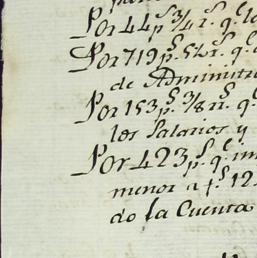 Por 44 p.s 3/4 r.s q.e la
Por 719 p.s 5 1/2 r.s q.e
de Administra
Por 153 p.s 3/8 r.s q.e
los Salarios y
Por 423 p.s q.e im
menor a f.s 12
do la Cuenta